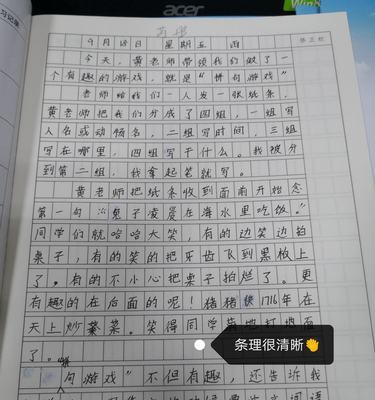 acer
9月18日 星期五 雨
今天,黄老师带领我们做了一
个有趣的游戏,就是“拼句游戏”
老师给我们一人发一张纸条,
黄老师把我们分成了四组,一组写
人名或动物名,二组写时间,三组
写在哪里,四组写干什么。我被分
到第二组,我拿起笔就写。
黄老师把纸条收到面前开始念
第一句:“兔子凌晨在海水里吃饭。”
同学们就哈哈大笑,有的边笑边拍
桌子,有的笑的把牙齿飞到黑板上
了。有的不小心把桌子拍烂了。更
有趣的在后面的呢!猪猪侠1716年在
天上炒菜。笑得同学满地打地面
了。
条理很清晰👏
句游戏”不但有趣,还告诉我